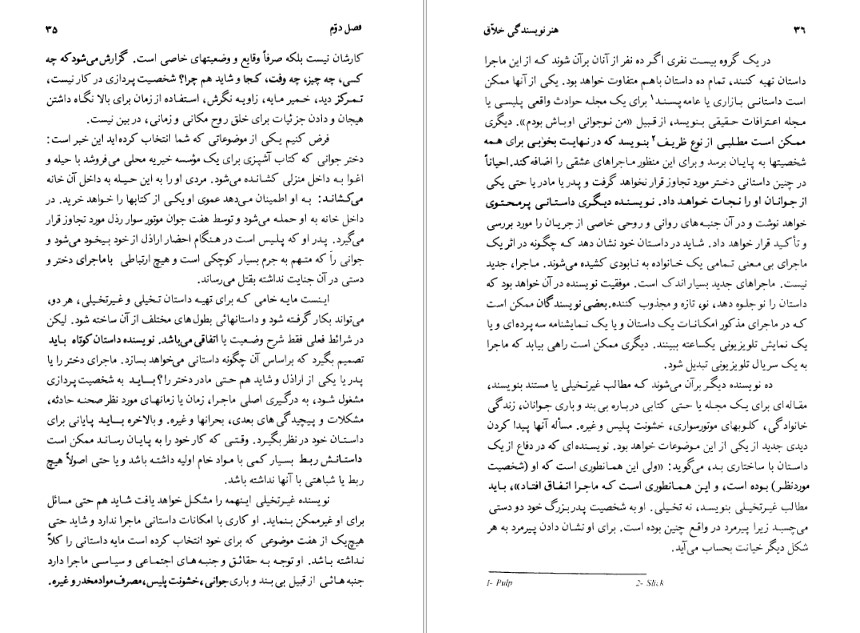 فصل دوّم ۳۵
کارشان نیست بلکه صرفاً وقایع و وضعیتهای خاصی است. گزارش می‌شود که چه
کسی، چه چیز، چه وقت، کجا و شاید هم چرا؟ شخصیت پردازی در کار نیست،
تمرکز دید، خمیر مایه، زاویه نگرش، استفاده از زمان برای بالا نگاه داشتن
هیجان و دادن جزئیات برای خلق روح مکانی و زمانی، در بین نیست.
فرض کنیم یکی از موضوعاتی که شما انتخاب کرده‌اید این خبر است:
دختر جوانی که کتاب آشپزی برای یک مؤسسه خیریه محلی می‌فروشد با حیله و
اغوا به داخل منزلی کشانده می‌شود. مردی او را به این حیله به داخل آن خانه
می‌کشاند: به او اطمینان می‌دهد عموی او یکی از کتابها را خواهد خرید. در
داخل خانه به او حمله می‌شود و توسط هفت جوان موتور سوار رذل مورد تجاوز قرار
می‌گیرد. پدر او که پلیس است در هنگام احضار اراذل از خود بیخود می‌شود و
جوانی را که متهم به جرم بسیار کوچکی است و هیچ ارتباطی با ماجرای دختر و
دستی در آن جنایت نداشته بقتل می‌رساند.
اینست مایه خامی که برای تهیه داستان تخیلی و غیرتخیلی، هر دو،
می‌تواند بکار گرفته شود و داستانهائی بطول‌های مختلف از آن ساخته شود. لیکن
در شرائط فعلی فقط شرح وضعیت یا اتفاقی می‌باشد. نویسنده داستان کوتاه باید
تصمیم بگیرد که براساس آن چگونه داستانی می‌خواهد بسازد. ماجرای دختر را یا
پدر یا یکی از اراذل و شاید هم حتی مادر دختر را؟ بـاید به شخصیت پردازی
مشغول شود، به درگیری اصلی ماجرا، زمان یا زمانهای مورد نظر صحنه حادثه،
مشکلات و پیچیدگی های بعدی، بحرانها و غیره. و بالاخره بـاید پایانی برای
داستان خود در نظر بگیرد. وقتی که کار خود را به پایان رساند ممکن است
داستانش ربط بسیار کمی با مواد خام اولیه داشته باشد و یا حتی اصولاً هیچ
ربط یا شباهتی با آنها نداشته باشد.
نویسنده غیرتخیلی اینهمه را مشکل خواهد یافت شاید هم حتی مسائل
برای او غیرممکن بنماید. او کاری با امکانات داستانی ماجرا ندارد و شاید حتی
هیچ‌یک از هفت موضوعی که برای خود انتخاب کرده است مایه داستانی را کلاً
نداشته باشد. او توجه به حقائق و جنبه های اجتماعی و سیاسی ماجرا دارد
جنبه هائی از قبیل بی بند و باری جوانی، خشونت پلیس، مصرف مواد مخدر و غیره.
۳۶ هنر نویسندگی خلاّق
در یک گروه بیست نفری اگر ده نفر از آنان برآن شوند که از این ماجرا
داستان تهیه کنند، تمام ده داستان باهم متفاوت خواهد بود. یکی از آنها ممکن
است داستانی بازاری یا عامه پسند۱ برای یک مجله حوادث واقعی پلیسی یا
مجله اعترافات حقیقی بنویسد، از قبیل «من نوجوانی اوباش بودم». دیگری
ممکن است مطلبی از نوع ظریف۲ بنویسد که در نهایت بخوبی برای همه
شخصیتها به پایان برسد و برای این منظور ماجراهای عشقی را اضافه کند. احیاناً
در چنین داستانی دختر مورد تجاوز قرار نخواهد گرفت و پدر یا مادر یا حتی یکی
از جوانان او را نجات خواهد داد. نویسنده دیگری داستانی پرمحتوی
خواهد نوشت و در آن جنبه‌های روانی و روحی خاصی از جریان را مورد بررسی
و تأکید قرار خواهد داد. شاید در داستان خود نشان دهد که چگونه در اثر یک
ماجرای بی معنی تمامی یک خانواده به نابودی کشیده می‌شوند. ماجرا، جدید
نیست. ماجراهای جدید بسیار اندک است. موفقیت نویسنده در آن خواهد بود که
داستان را نو جلوه دهد، نو، تازه و مجذوب کننده. بعضی نویسندگان ممکن است
که در ماجرای مذکور امکانات یک داستان و یا یک نمایشنامه سه پرده‌ای و یا
یک نمایش تلویزیونی یکساعته ببینند. دیگری ممکن است راهی بیابد که ماجرا
به یک سریال تلویزیونی تبدیل شود.
ده نویسنده دیگر برآن می‌شوند که مطالب غیرتخیلی یا مستند بنویسند،
مقاله‌ای برای یک مجله یا حتی کتابی درباره بی بند و باری جوانان، زندگی
خانوادگی، کلوبهای موتورسواری، خشونت پلیس و غیره. مسأله آنها پیدا کردن
دیدی جدید از یکی از این موضوعات خواهد بود. نویسنده‌ای که در دفاع از یک
داستان با ساختاری بد، می‌گوید: «ولی این همانطوری است که او (شخصیت
موردنظر) بوده است، و این همانطوری است که ماجرا اتفاق افتاد»، باید
مطالب غیرتخیلی بنویسد، نه تخیلی. او به شخصیت پدربزرگ خود دو دستی
می‌چسبد زیرا پیرمرد در واقع چنین بوده است. برای او نشان دادن پیرمرد به هر
شکل دیگر خیانت بحساب می‌آید.
1- Pulp 2- Slick